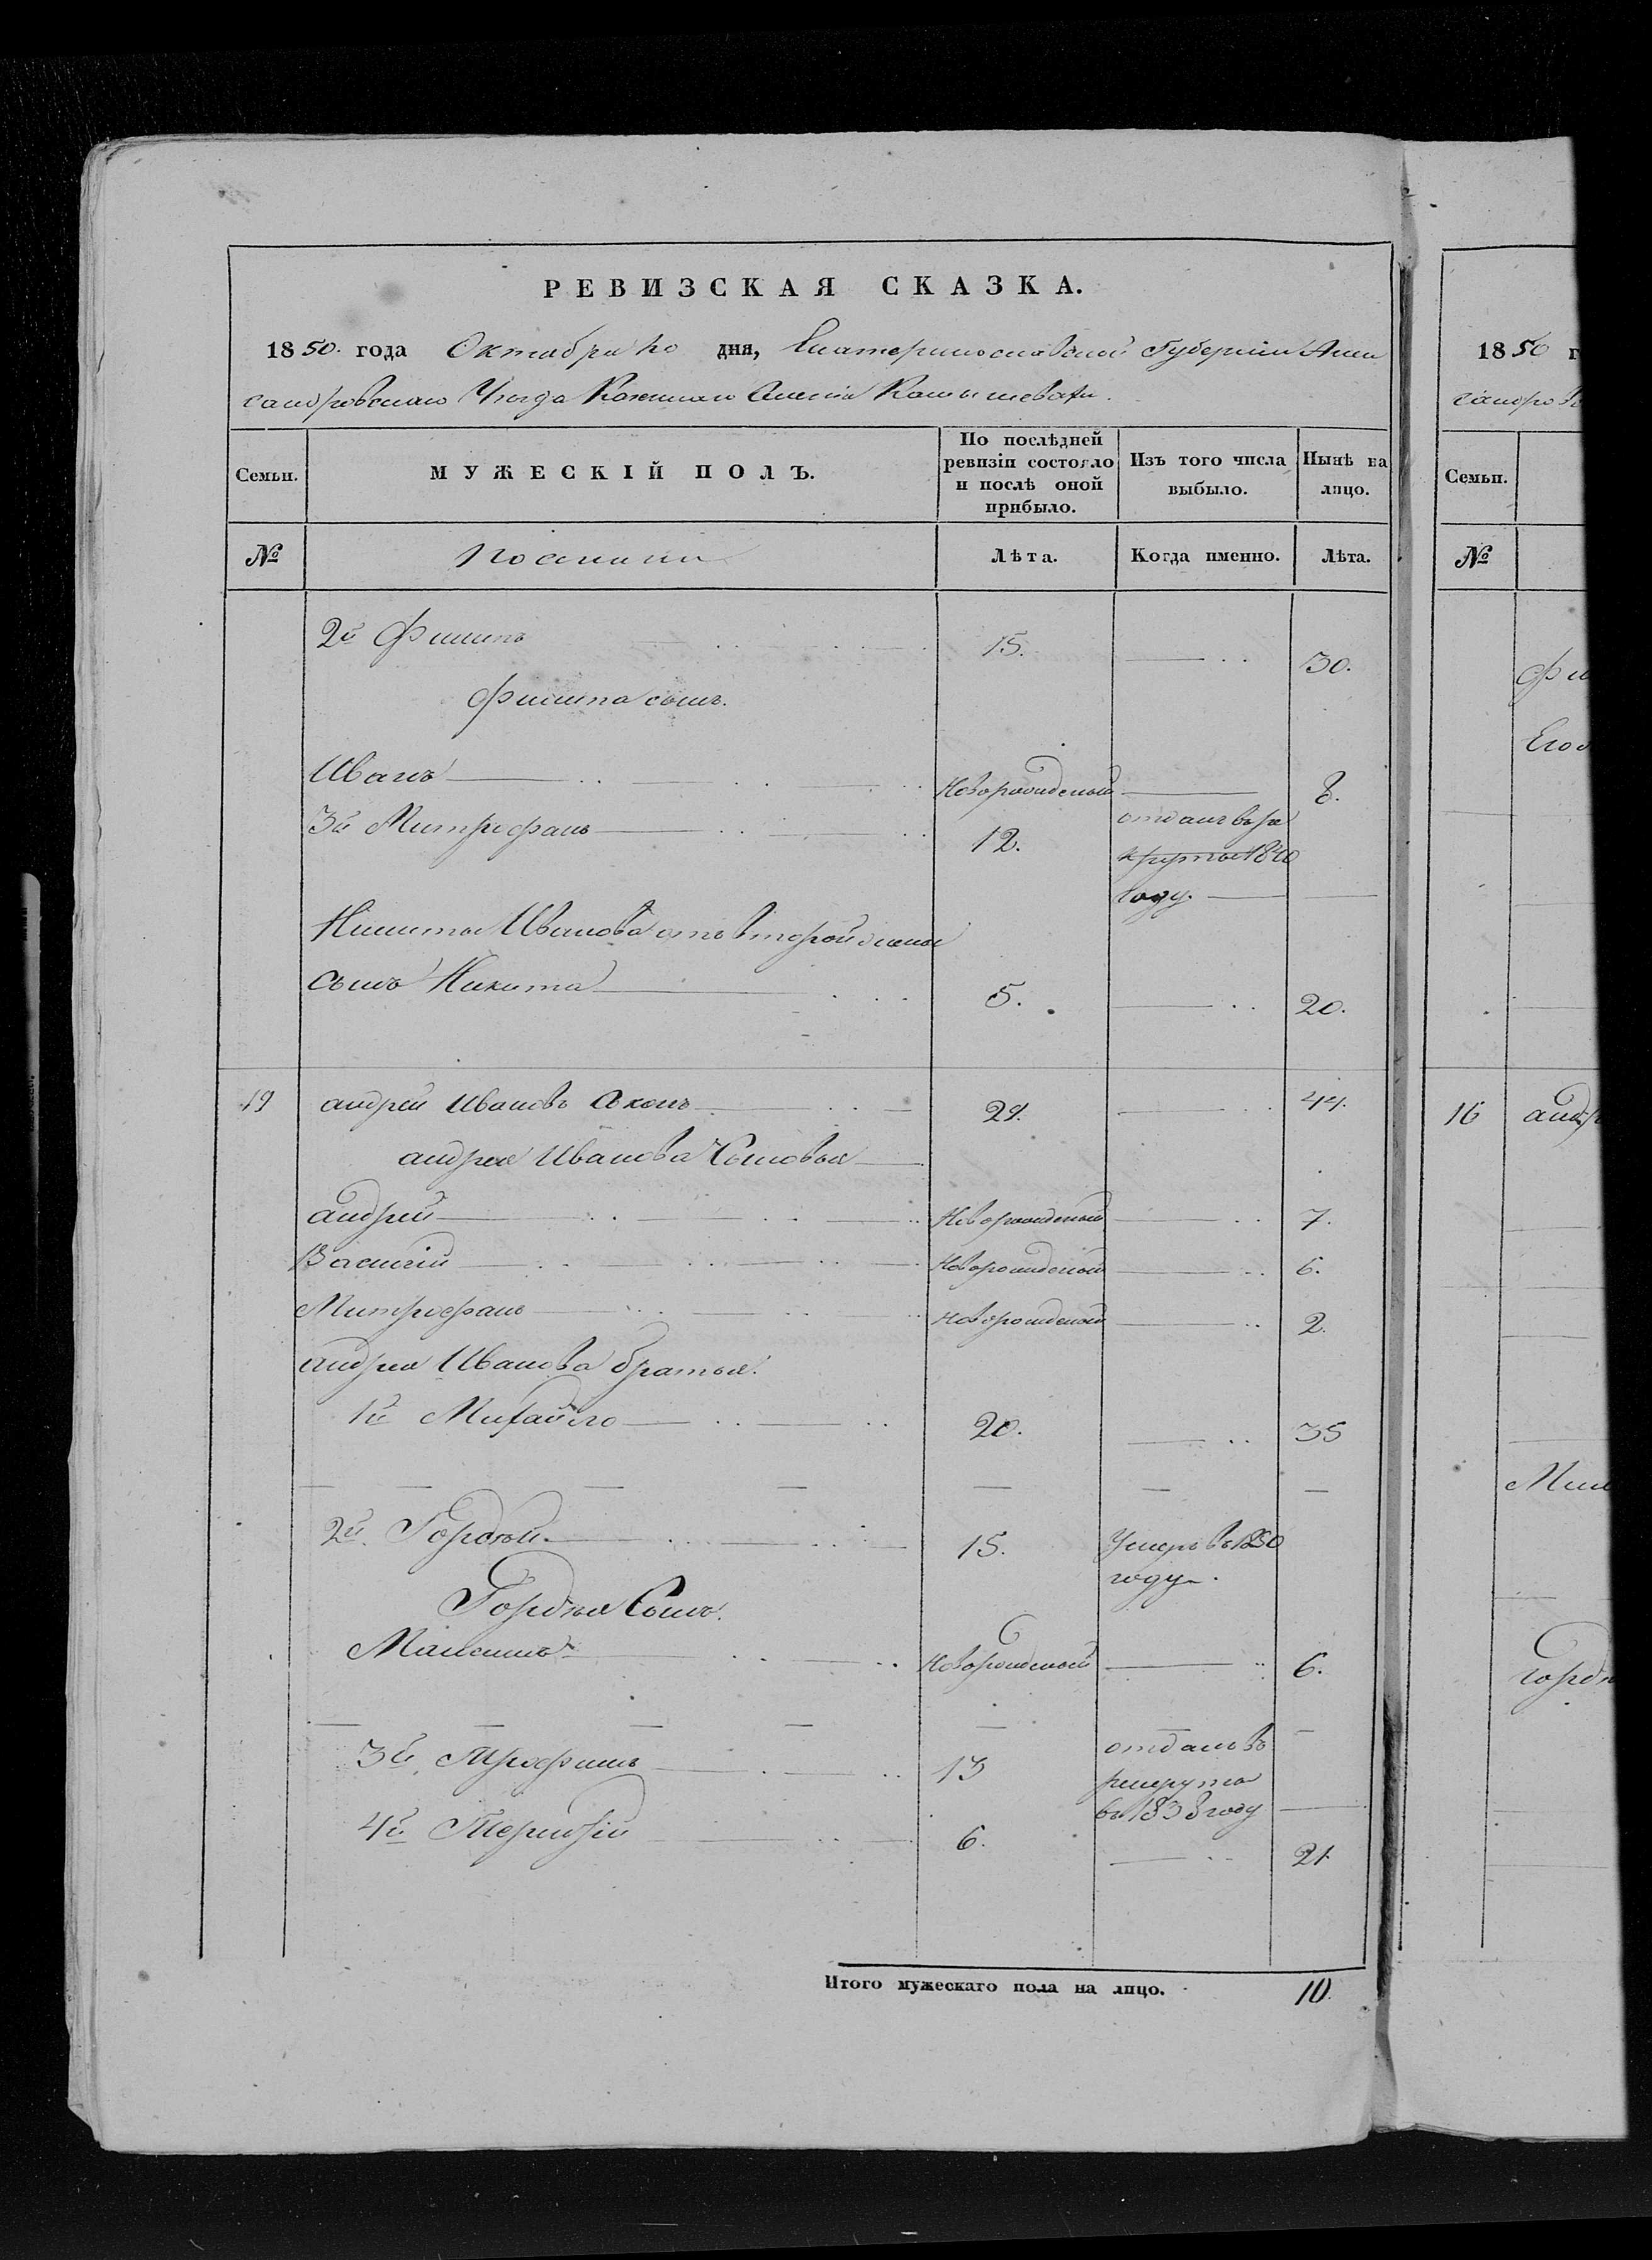 РЕВИЗСКАЯ СКАЗКА.
1850. года Октября 20 дня, Екатеринославской Губерніи Алек
сандровскаго Уѣзда Казеннаго Селенія Камышевахи.
Семьи. МУЖЕСКІЙ ПОЛЪ. По послѣдней ревизіи состояло и послѣ оной прибыло. Изъ того числа выбыло. Нынѣ на лицо.
№ Лѣта. Когда именно. Лѣта.
2й Филипъ 15. 30.
Филипа сынъ.
Иванъ Новорожденый 8.
3й Митрофанъ 12. отданъ въ ре
круты 1840
году.
Никиты Иванова отъ второй жены
сынъ Никита 5. 20.
19 андрей Ивановъ 29. 44.
андрея Иванова Сыновья
андрей Новорожденый 7.
Василій Новорожденый 6.
Митрофанъ новорожденый 2.
андрея Иванова братья.
1й Михайло 20. 35
2й. Гордѣй 15. Умеръ въ 1850
году.
Гордѣя Сынъ.
Максимъ Новорожденый 6.
3й. Трофимъ 13 отданъ въ
рекруты
въ 1838 году
4й Терентій 6. 21
Итого мужескаго пола на лицо. 10.
1850 г
Семьи.
№
Фи
Его
16 андр
Мих
Гордѣ